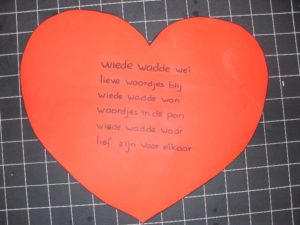 wiede wadde wei
lieve woordjes blij
wiede wadde wan
woordjes in de pan
wiede wadde waar
lief zijn voor elkaar